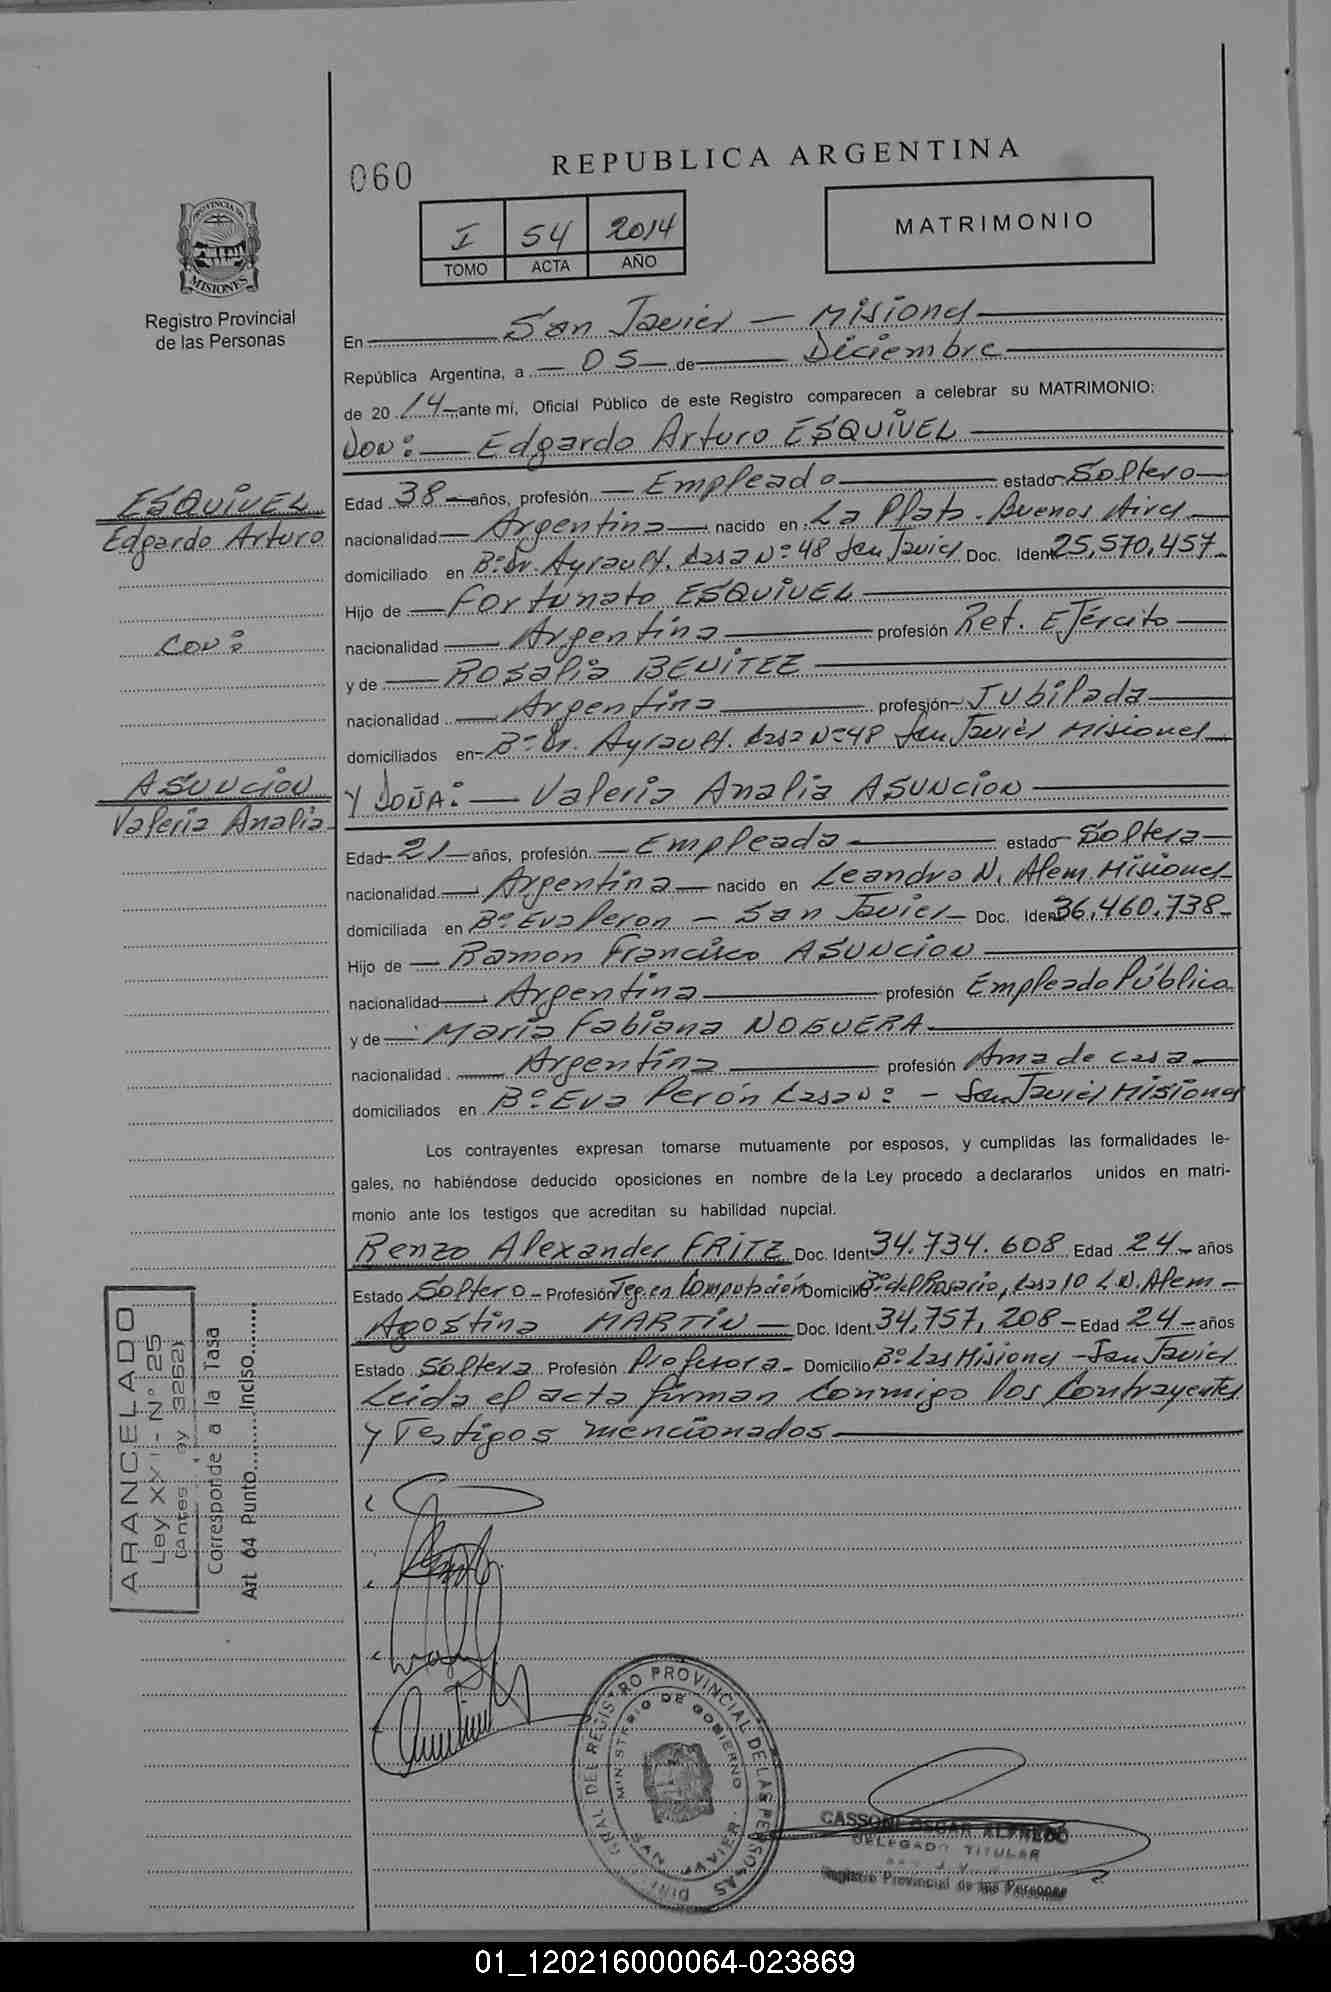 060
REPUBLICA ARGENTINA
I 54 2014
TOMO ACTA AÑO
MATRIMONIO
PROVINCIA DE
MISIONES
Registro Provincial
de las Personas
En San Javier — Misiones
República Argentina, a — 05 — de Diciembre
de 20 14 ante mí, Oficial Público de este Registro comparecen a celebrar su MATRIMONIO:
DON: — Edgardo Arturo ESQUIVEL
ESQUIVEL
Edgardo Arturo
con:
ASUNCION
Valeria Analia
Edad 38 años, profesión Empleado estado Soltero
nacionalidad Argentina nacido en La Plata - Buenos Aires
domiciliado en B° Dr. Ayrault. Casa N° 48 San Javier Doc. Ident 25,570,457
Hijo de Fortunato ESQUIVEL
nacionalidad Argentina profesión Ret. Ejército
y de Rosalia BENITEZ
nacionalidad Argentina profesión Jubilada
domiciliados en B° Dr. Ayrault. Casa N° 48 San Javier Misiones
Y DOÑA: — Valeria Analia ASUNCION
Edad 21 años, profesión Empleada estado Soltera
nacionalidad Argentina nacido en Leandro N. Alem Misiones
domiciliada en B° Eva Peron — San Javier Doc. Ident 36,460,738
Hijo de Ramon Francisco ASUNCION
nacionalidad Argentina profesión Empleado Público
y de Maria Fabiana NOGUERA
nacionalidad Argentina profesión Ama de casa
domiciliados en B° Eva Perón Casa N° — San Javier Misiones
Los contrayentes expresan tomarse mutuamente por esposos, y cumplidas las formalidades le-
gales, no habiéndose deducido oposiciones en nombre de la Ley procedo a declararlos unidos en matri-
monio ante los testigos que acreditan su habilidad nupcial.
Renzo Alexander FRITZ Doc. Ident 34.734.608 Edad 24 años
Estado Soltero Profesión Teg. en Computación Domicilio B° del Rosario, Casa 10 L.N. Alem
Agostina MARTIN Doc. Ident. 34,757,208 Edad 24 años
Estado Soltera Profesión Profesora Domicilio B° Las Misiones - San Javier
Leida el acta firman conmigo los Contrayentes
y Testigos mencionados
ARANCELADO
Ley XXII - N° 25
(Antes Ley 3262)
Corresponde a la Tasa
Art 64 Punto........Inciso........
REGISTRO PROVINCIAL DE LAS PERSONAS
MINISTERIO DE GOBIERNO
SAN JAVIER
CASSONI OSCAR ALFREDO
DELEGADO TITULAR
Registro Provincial de las Personas
01_120216000064-023869